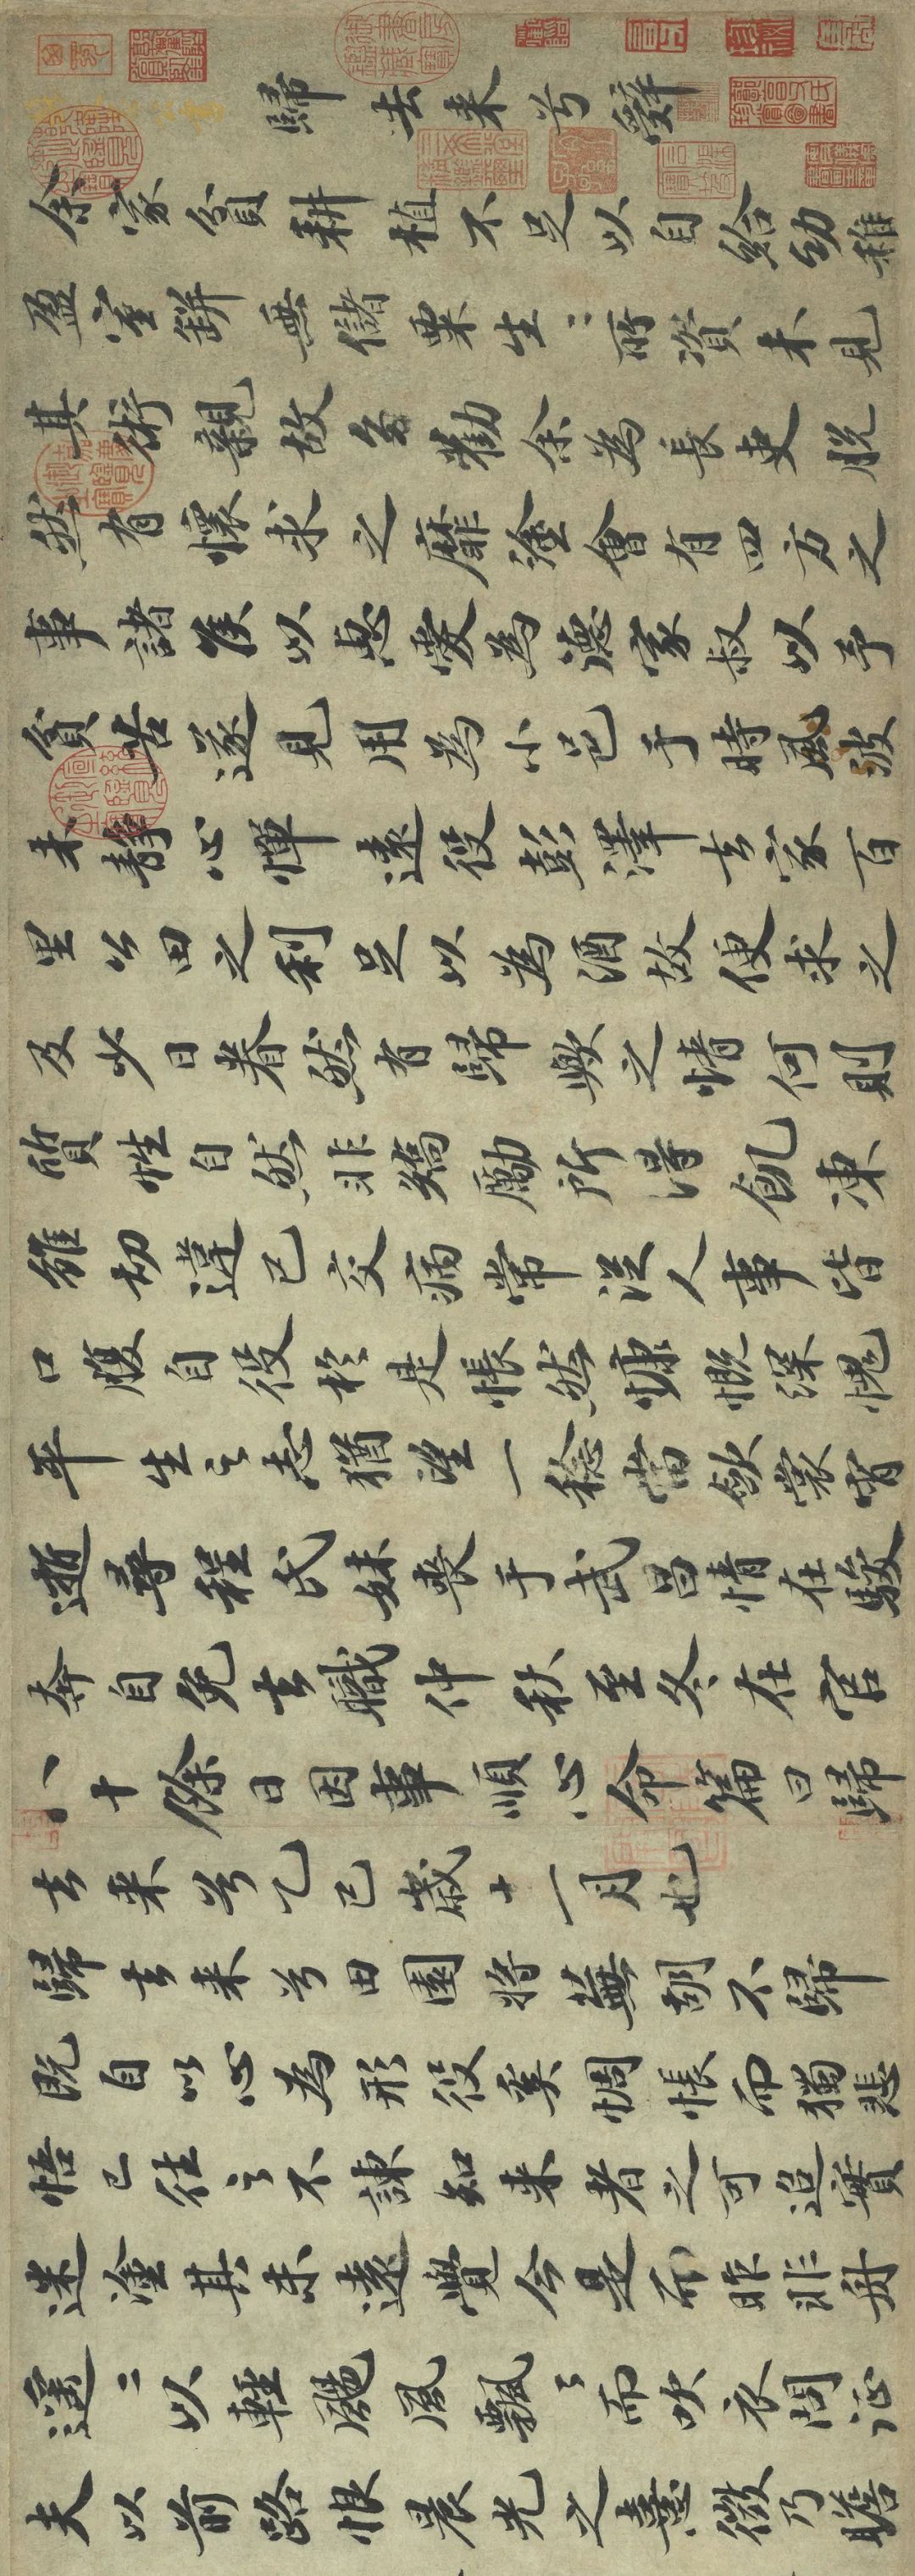 歸去来兮辭
余家貧耕植不足以自給幼稚
盈室缾無儲粟生〻所資未見
其術親故多勸余為長吏脫
然有懷求之靡塗會有四方之
事諸侯以惠愛為德家叔以予
貧苦遂見用為小邑于時風波
未靜心憚遠役彭澤去家百
里公田之利足以為酒故便求之
及少日眷然有歸歟之情何則
質性自然非矯勵所得飢凍
雖切違己交病常從人事皆
口腹自役於是悵然慷慨深愧
平生之志猶望一稔當歛裳宵
逝尋程氏妹喪于武昌情在駿
奔自免去職仲秋至冬在官
八十餘日因事順心命篇曰歸
去来兮乙巳歲十一月也
歸去来兮田園將蕪胡不歸
既自以心為形役奚惆悵而獨悲
悟已往之不諫知来者之可追實
迷塗其未遠覺今是而昨非舟
遙〻以輕颺風飄〻而吹衣問征
夫以前路恨晨光之熹微乃瞻